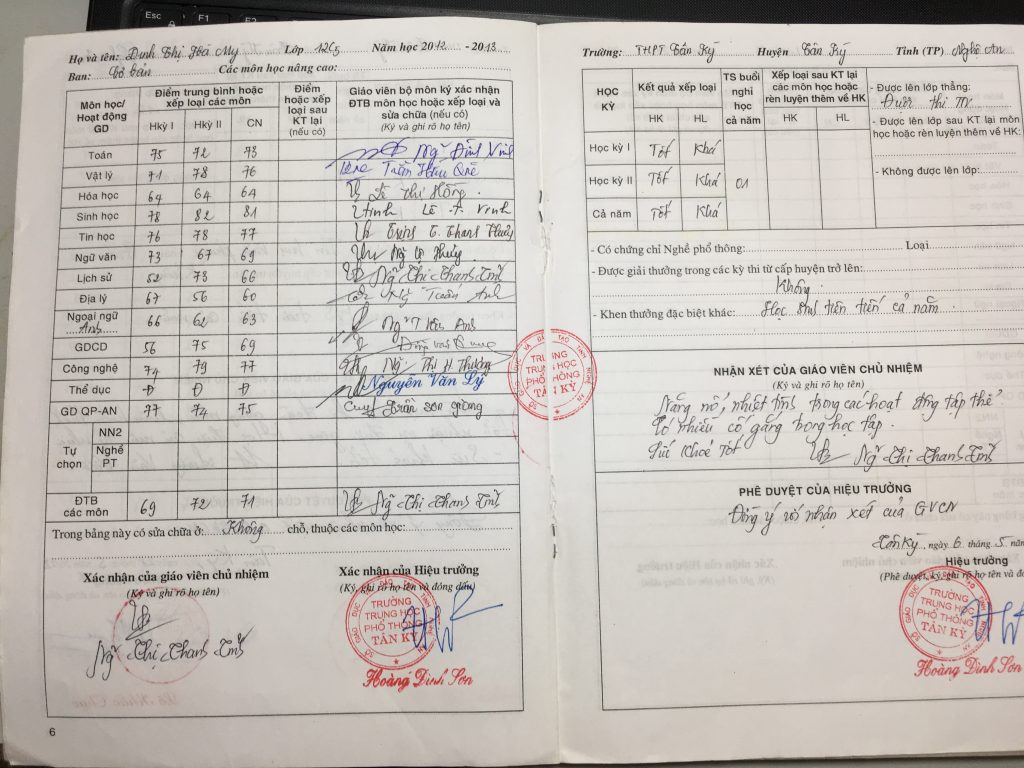 Esc F1 F2 F3
Họ và tên: Đinh Thị Hà My Lớp 12C5 Năm học 2012 - 2013
Ban: Cơ bản Các môn học nâng cao:
Môn học/ Hoạt động GD
Điểm trung bình hoặc xếp loại các môn
Hkỳ I Hkỳ II CN
Điểm hoặc xếp loại sau KT lại (nếu có)
Giáo viên bộ môn ký xác nhận ĐTB môn học hoặc xếp loại và sửa chữa (nếu có)
(Ký và ghi rõ họ tên)
Toán 75 72 73 Ng Đình Vinh
Vật lý 71 78 76 Trần Hữu Quê
Hóa học 64 64 64 Lê Thị Hồng
Sinh học 78 82 81 Lê T. Vinh
Tin học 76 78 77 T. Thanh Thuỷ
Ngữ văn 73 67 69 Thuỷ
Lịch sử 52 73 66 Ng Thị Thanh
Địa lý 67 56 60 Tuấn Anh
Ngoại ngữ Anh 66 62 63 Ng T Anh
GDCD 56 75 69
Công nghệ 74 79 77 Ng Thị H Thương
Thể dục Đ Đ Đ Nguyễn Văn Lý
GD QP-AN 77 74 75 Trần
Tự chọn
NN2
Nghề PT
ĐTB các môn 69 72 71 Ng Thị Thanh
Trong bảng này có sửa chữa ở: Không chỗ, thuộc các môn học:
Xác nhận của giáo viên chủ nhiệm
(Ký và ghi rõ họ tên)
Ng Thị Thanh
Xác nhận của Hiệu trưởng
(Ký, ghi rõ họ tên và đóng dấu)
TRƯỜNG
TRUNG HỌC
PHỔ THÔNG
TÂN KỲ
Hoàng Đình Sơn
6
Trường: THPT Tân Kỳ Huyện Tân Kỳ Tỉnh (TP) Nghệ An
HỌC KỲ
Kết quả xếp loại
HK HL
TS buổi nghỉ học cả năm
Xếp loại sau KT lại các môn học hoặc rèn luyện thêm về HK
HK HL
- Được lên lớp thẳng:
Được thi TN
- Được lên lớp sau KT lại môn học hoặc rèn luyện thêm về HK:
- Không được lên lớp:
Học kỳ I Tốt Khá
Học kỳ II Tốt Khá 01
Cả năm Tốt Khá
- Có chứng chỉ Nghề phổ thông: Loại
- Được giải thưởng trong các kỳ thi từ cấp huyện trở lên:
Không
- Khen thưởng đặc biệt khác: Học sinh tiên tiến cả năm
TRƯỜNG
TRUNG HỌC
PHỔ THÔNG
TÂN KỲ
NHẬN XÉT CỦA GIÁO VIÊN CHỦ NHIỆM
(Ký và ghi rõ họ tên)
Năng nổ, nhiệt tình trong các hoạt động tập thể
Có nhiều cố gắng trong học tập.
Sức khoẻ Tốt
Ng Thị Thanh
PHÊ DUYỆT CỦA HIỆU TRƯỞNG
Đồng ý với nhận xét của GVCN
Tân Kỳ, ngày 6 tháng 5 năm
Hiệu trưởng
(Phê duyệt, ký, ghi rõ họ tên và
TRƯỜNG
TRUNG HỌC
PHỔ THÔNG
TÂN KỲ
Hoàng Đình Sơn